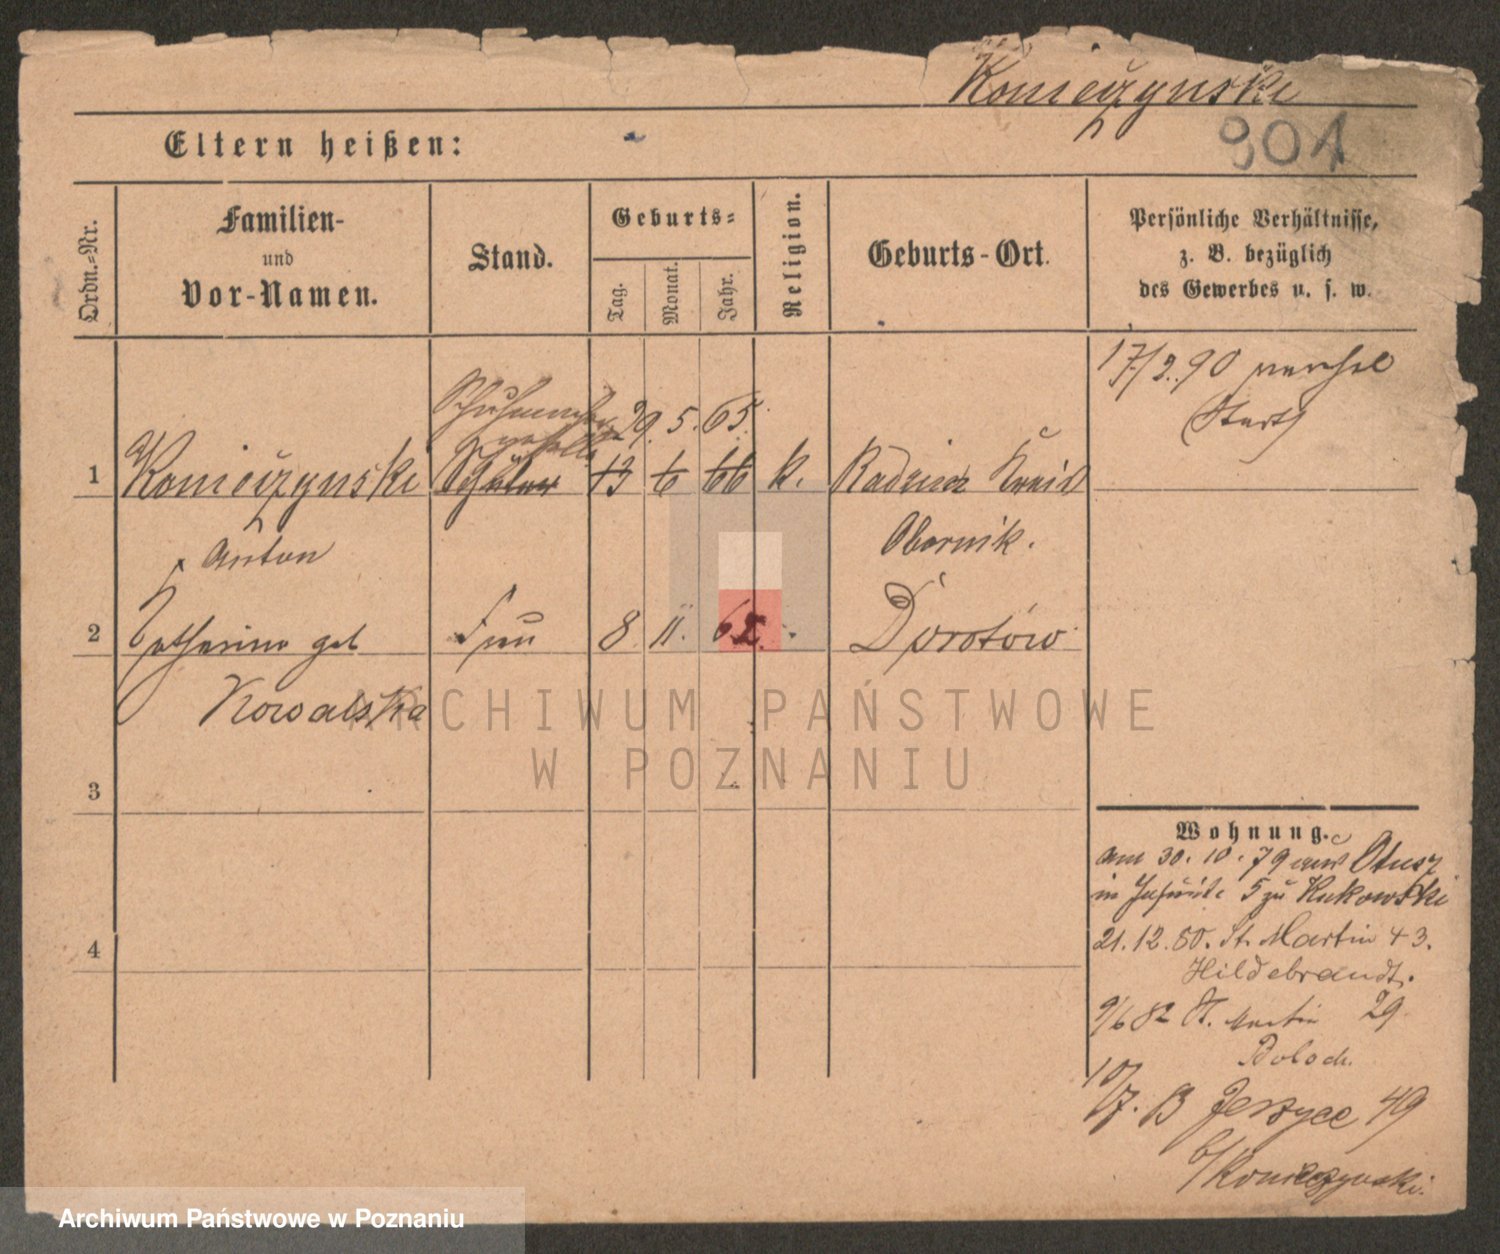 Koniecżynski
901
Eltern heißen:
Ordn.-Nr.
Familien-
und
Vor-Namen.
Stand.
Geburts-
Tag.
Monat.
Jahr.
Religion.
Geburts-Ort.
Persönliche Verhältnisse,
z. B. bezüglich
des Gewerbes u. s. w.
17/2. 90
Schuhmacher
geselle
29. 5. 65.
1 Koniecżynski Schüler 13 6 66 k. Kreis
Anton
Obornik.
2 Katharina geb Frau 8. 11. 62. Dorotówo
Kowalska
ARCHIWUM PAŃSTWOWE
W POZNANIU
3
4
Wohnung.
am 30. 10. 79 aus Otusz
in Jesuit. 5 zu Kukowski
21. 12. 80. St. Martin 43.
Hildebrandt.
9/6 82 St. Martin 29.
10/7. 83 Jerzyce 49
b/ Konieczynski.
Archiwum Państwowe w Poznaniu